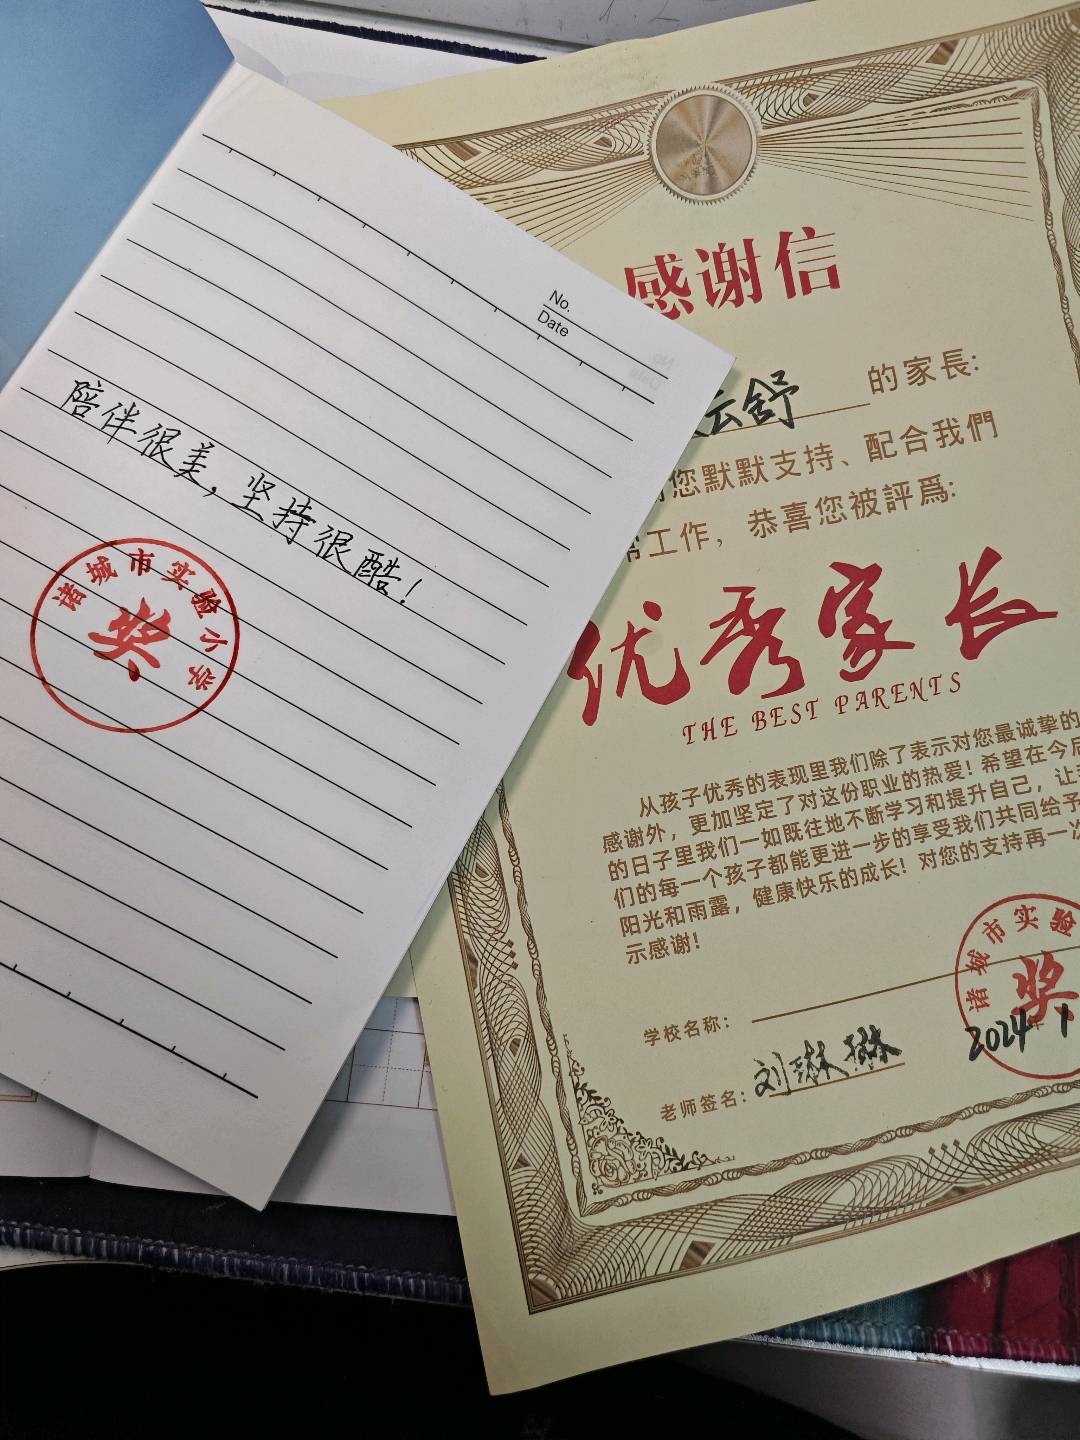 No.
Date
陪伴很美，坚持很酷！
诸城市实验小学
奖
感谢信
云舒的家長:
您默默支持、配合我們
工作，恭喜您被評爲:
优秀家长
THE BEST PARENTS
从孩子优秀的表现里我们除了表示对您最诚挚的
感谢外，更加坚定了对这份职业的热爱！希望在今后
的日子里我们一如既往地不断学习和提升自己，让
们的每一个孩子都能更进一步的享受我们共同给予
阳光和雨露，健康快乐的成长！对您的支持再一次
示感谢！
诸城市实验
奖
学校名称：
2024年1
老师签名：刘琳琳